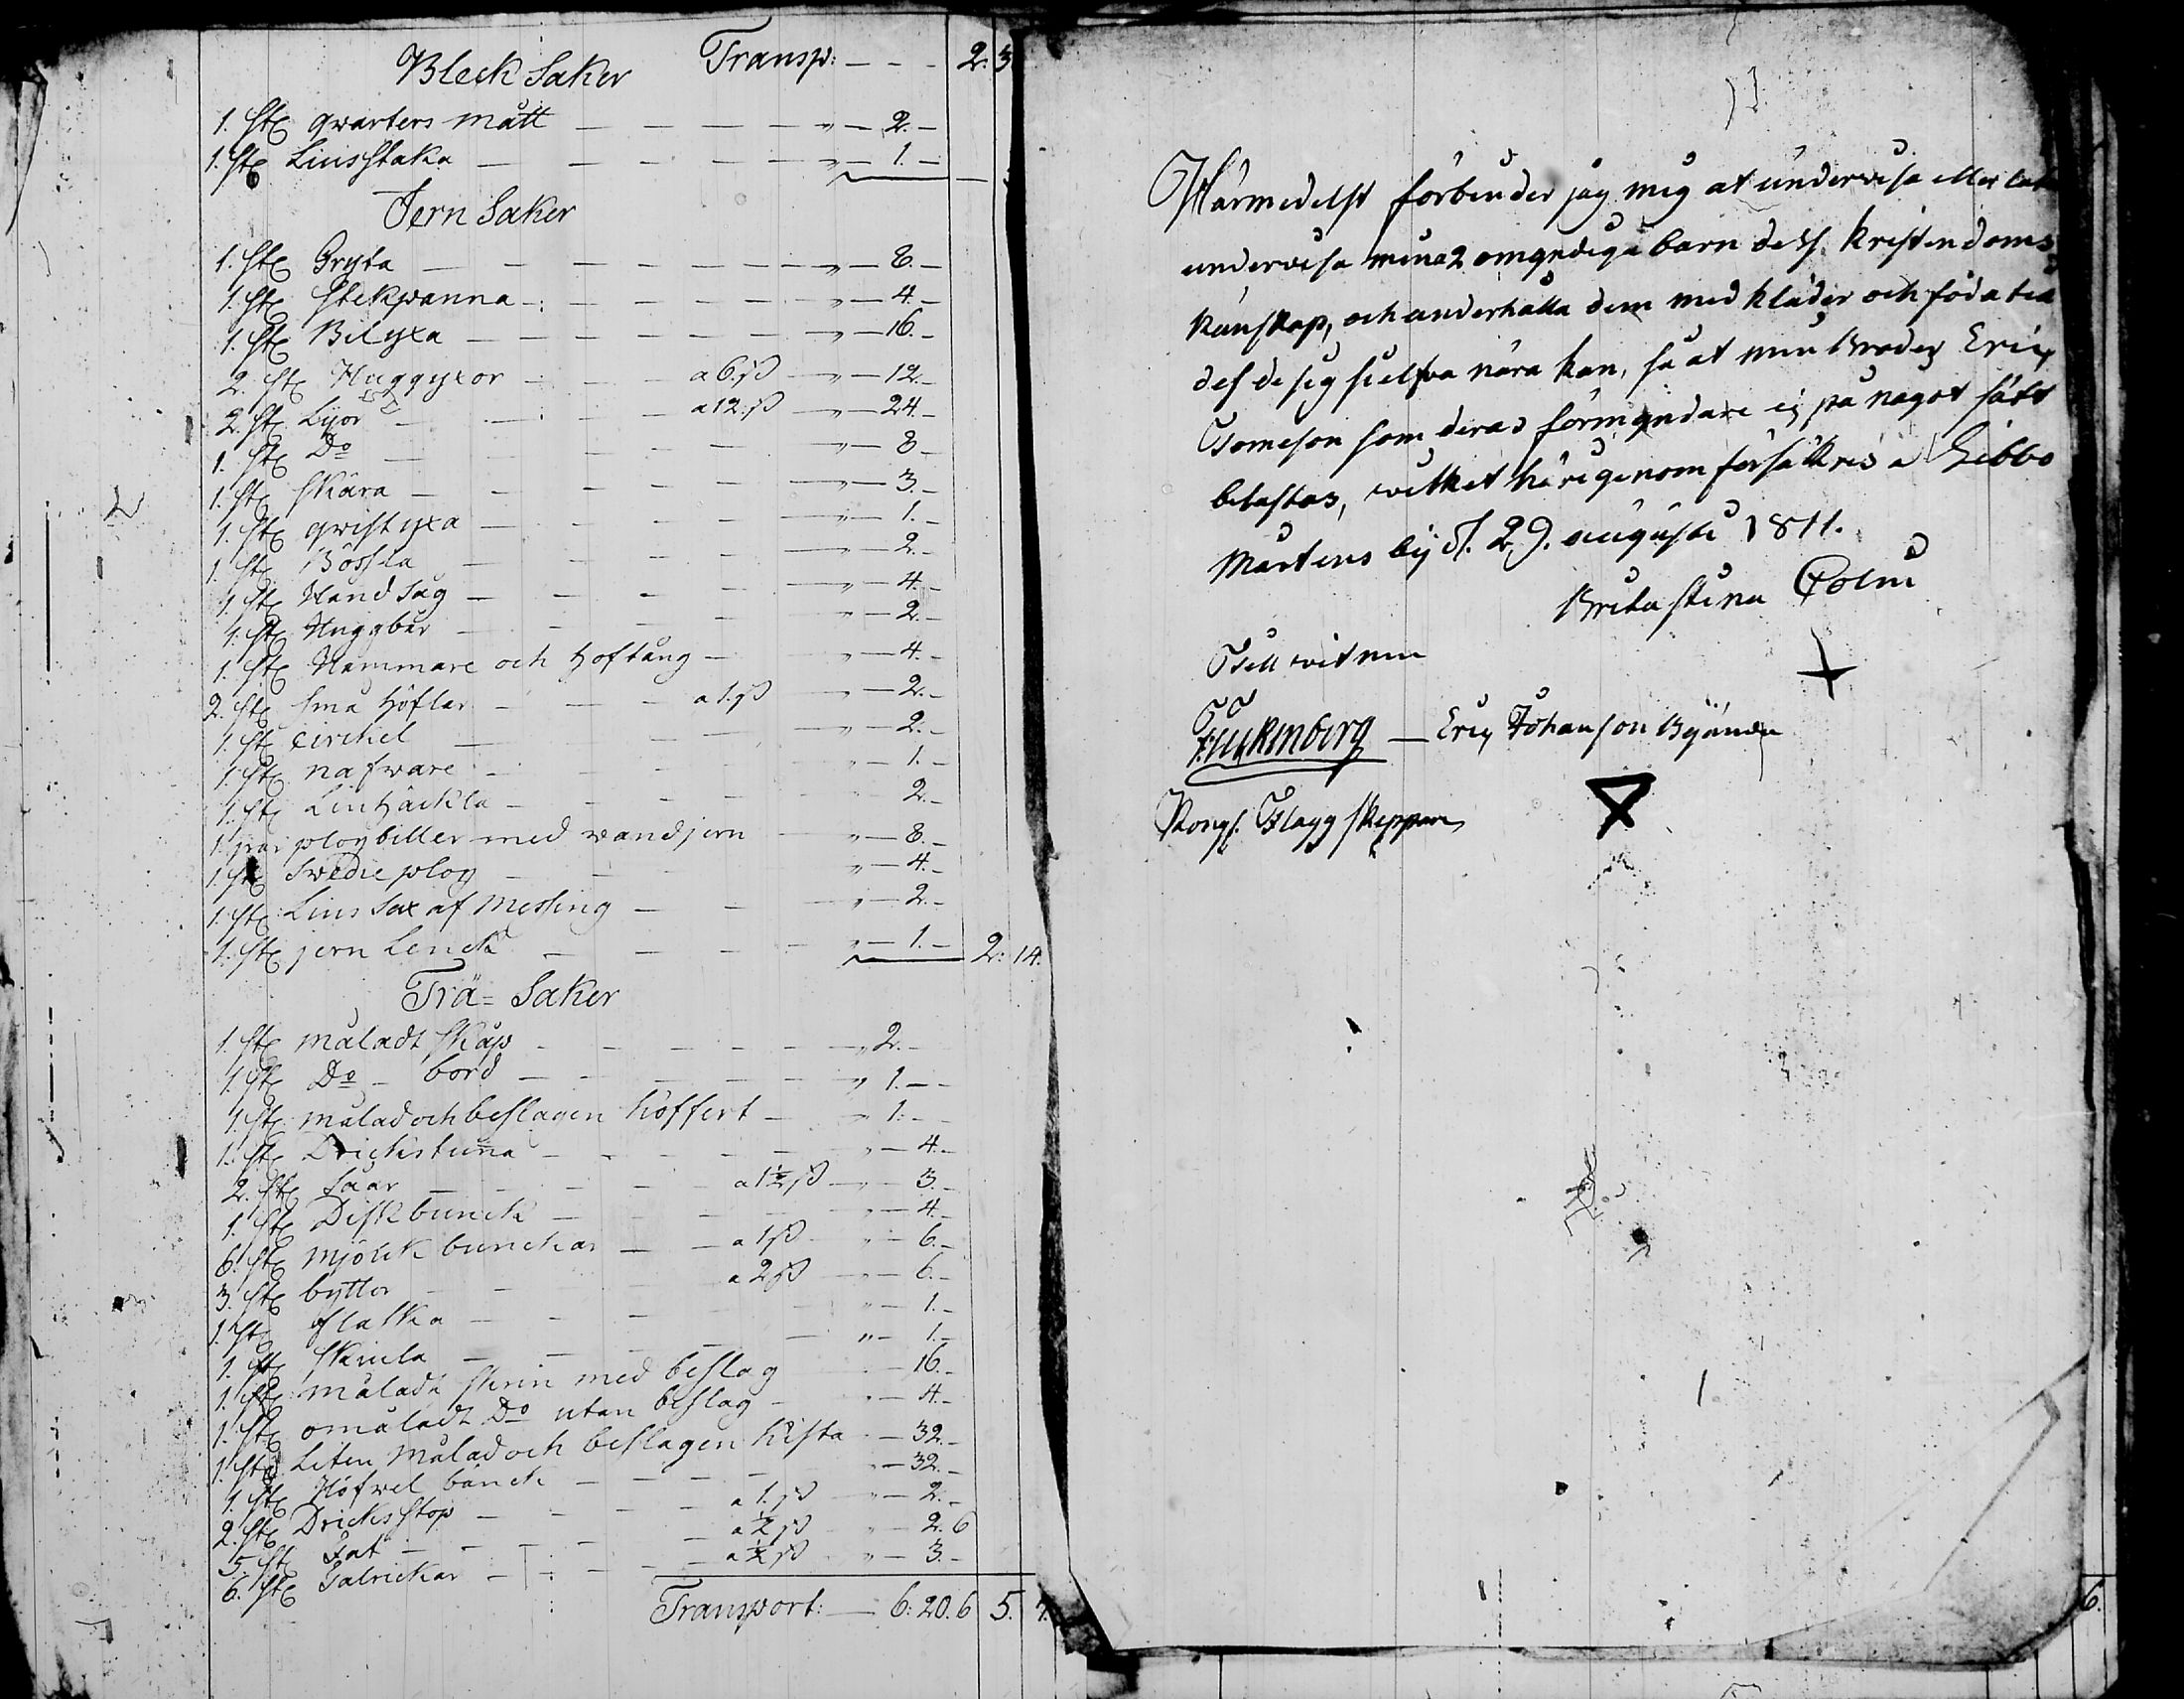 Bleck Saker Transp: — — — 2: 3
1. St qwarters mått — — — — „ — 2. —
1. St Liusstaka — — — — „ — 1. —
Jern Saker
1. St Gryta — — — — — — „ — 8. —
1. St Stekpanna — — — — — „ — 4. —
1. St Bilyxa — — — — — „ — 16. —
2. St Huggyxor — — — a 6 ß — „ — 12. —
2. St Lijor — — — a 12: ß — „ — 24. —
1. St Do — — — — „ — 8 —
1. St Skära — — — — — „ — 3. —
1. St qwistyxa — — — — — „ — 1. —
1. St Bössla — — — — „ — 2. —
1. St Hand såg — — — — „ — 4. —
1. St Huggbär — — — — „ — 2. —
1. St Hammare och Hoftång — „ — 4. —
2. St små Höflar — — — a 1. ß — „ — 2. —
1. St Circkel — — — „ — 2. —
1. St nafware — — — „ — 1. —
1. St Linhäckla — — — 2. —
1. par plogbiller med wandjern „ — 8. —
1. St Swedie plog — — „ — 4. —
1. St Lius Sax af Messing — — „ — 2. —
1. St jern Lenck — — — „ — 1. — 2: 14.
Trä= Saker
1. St måladt Skåp — — — — — „ 2. —
1. St Do — bord — — — — — „ 1. — —
1. St målad och beslagen Koffert — „ 1: — —
1. St Drickstuna — — — — „ — 4. —
2. St Såar — — — — a 1½ ß — „ — 3. —
1. St Diskbunck — — — — „ — 4. —
6. St Mjölck bunckar — — a 1 ß „ — 6. —
3. St byttor — — a 2 ß — „ — 6. —
1. St flaska — — — „ — 1. —
1. St Skiula — — — — „ — 1. —
1. St måladt skrin med beslag — 16. —
1. St omåladt Do utan beslag — — 4. —
1. St Liten Målad och beslagen Kista — 32. —
1. St Höfwel bänck — — — — — 32. —
2. St Dricksstop — — — a 1. ß „ — 2. —
5. St Fat — — — — a ½ ß „ — 2. 6
6. St Talrickar — — — a ½ ß „ — 3. —
Transport: — 6: 20. 6 5.
Härmedelst förbinder jag mig at undervisa eller låta
undervisa mina 2 omyndiga barn dess Kristendoms
kunskap, och underhålla dem med kläder och föda till
des de sig sielfva nära kan, så at min Broder Erik
Tomeson som deras förmyndare ej på något sätt
belastas, vilket härigenom försäkras a Gibbo
Mårtens by d. 29. augusti 1811.
Brita Stina
Till witne
Erik Johanson Byända
Kongl. Flagg skeppare
6.